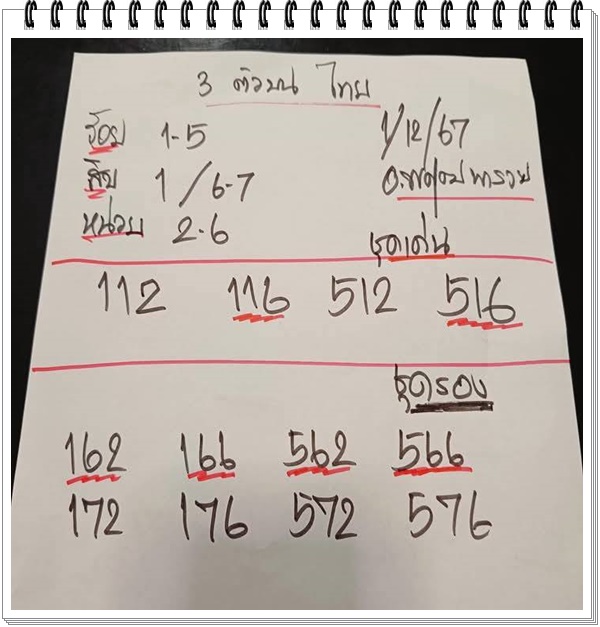 3 ตัวบน ไทย
ร้อย 1-5
1/12/67
สิบ 1 / 6-7
หน่วย 2-6
ชุดเด่น
112 116 512 516
ชุดรอง
162 166 562 566
172 176 572 576